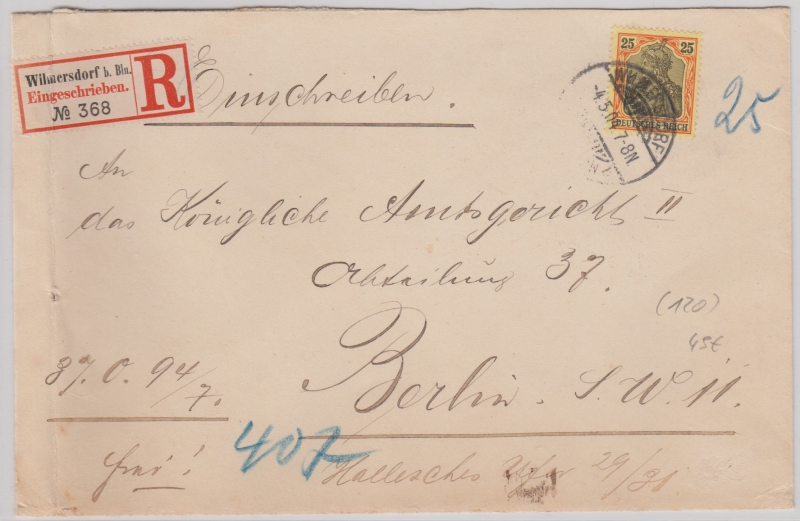 Wilmersdorf b. Bln.
Eingeschrieben.
R
№ 368
Einschreiben.
25 25
DEUTSCHES REICH
7-8N
25
An
das Königliche Amtsgericht II
Abteilung 37.
(120)
45€
Berlin. S.W. 11.
37. O. 94/7.
frei!
407
Hallesches Ufer 29/31